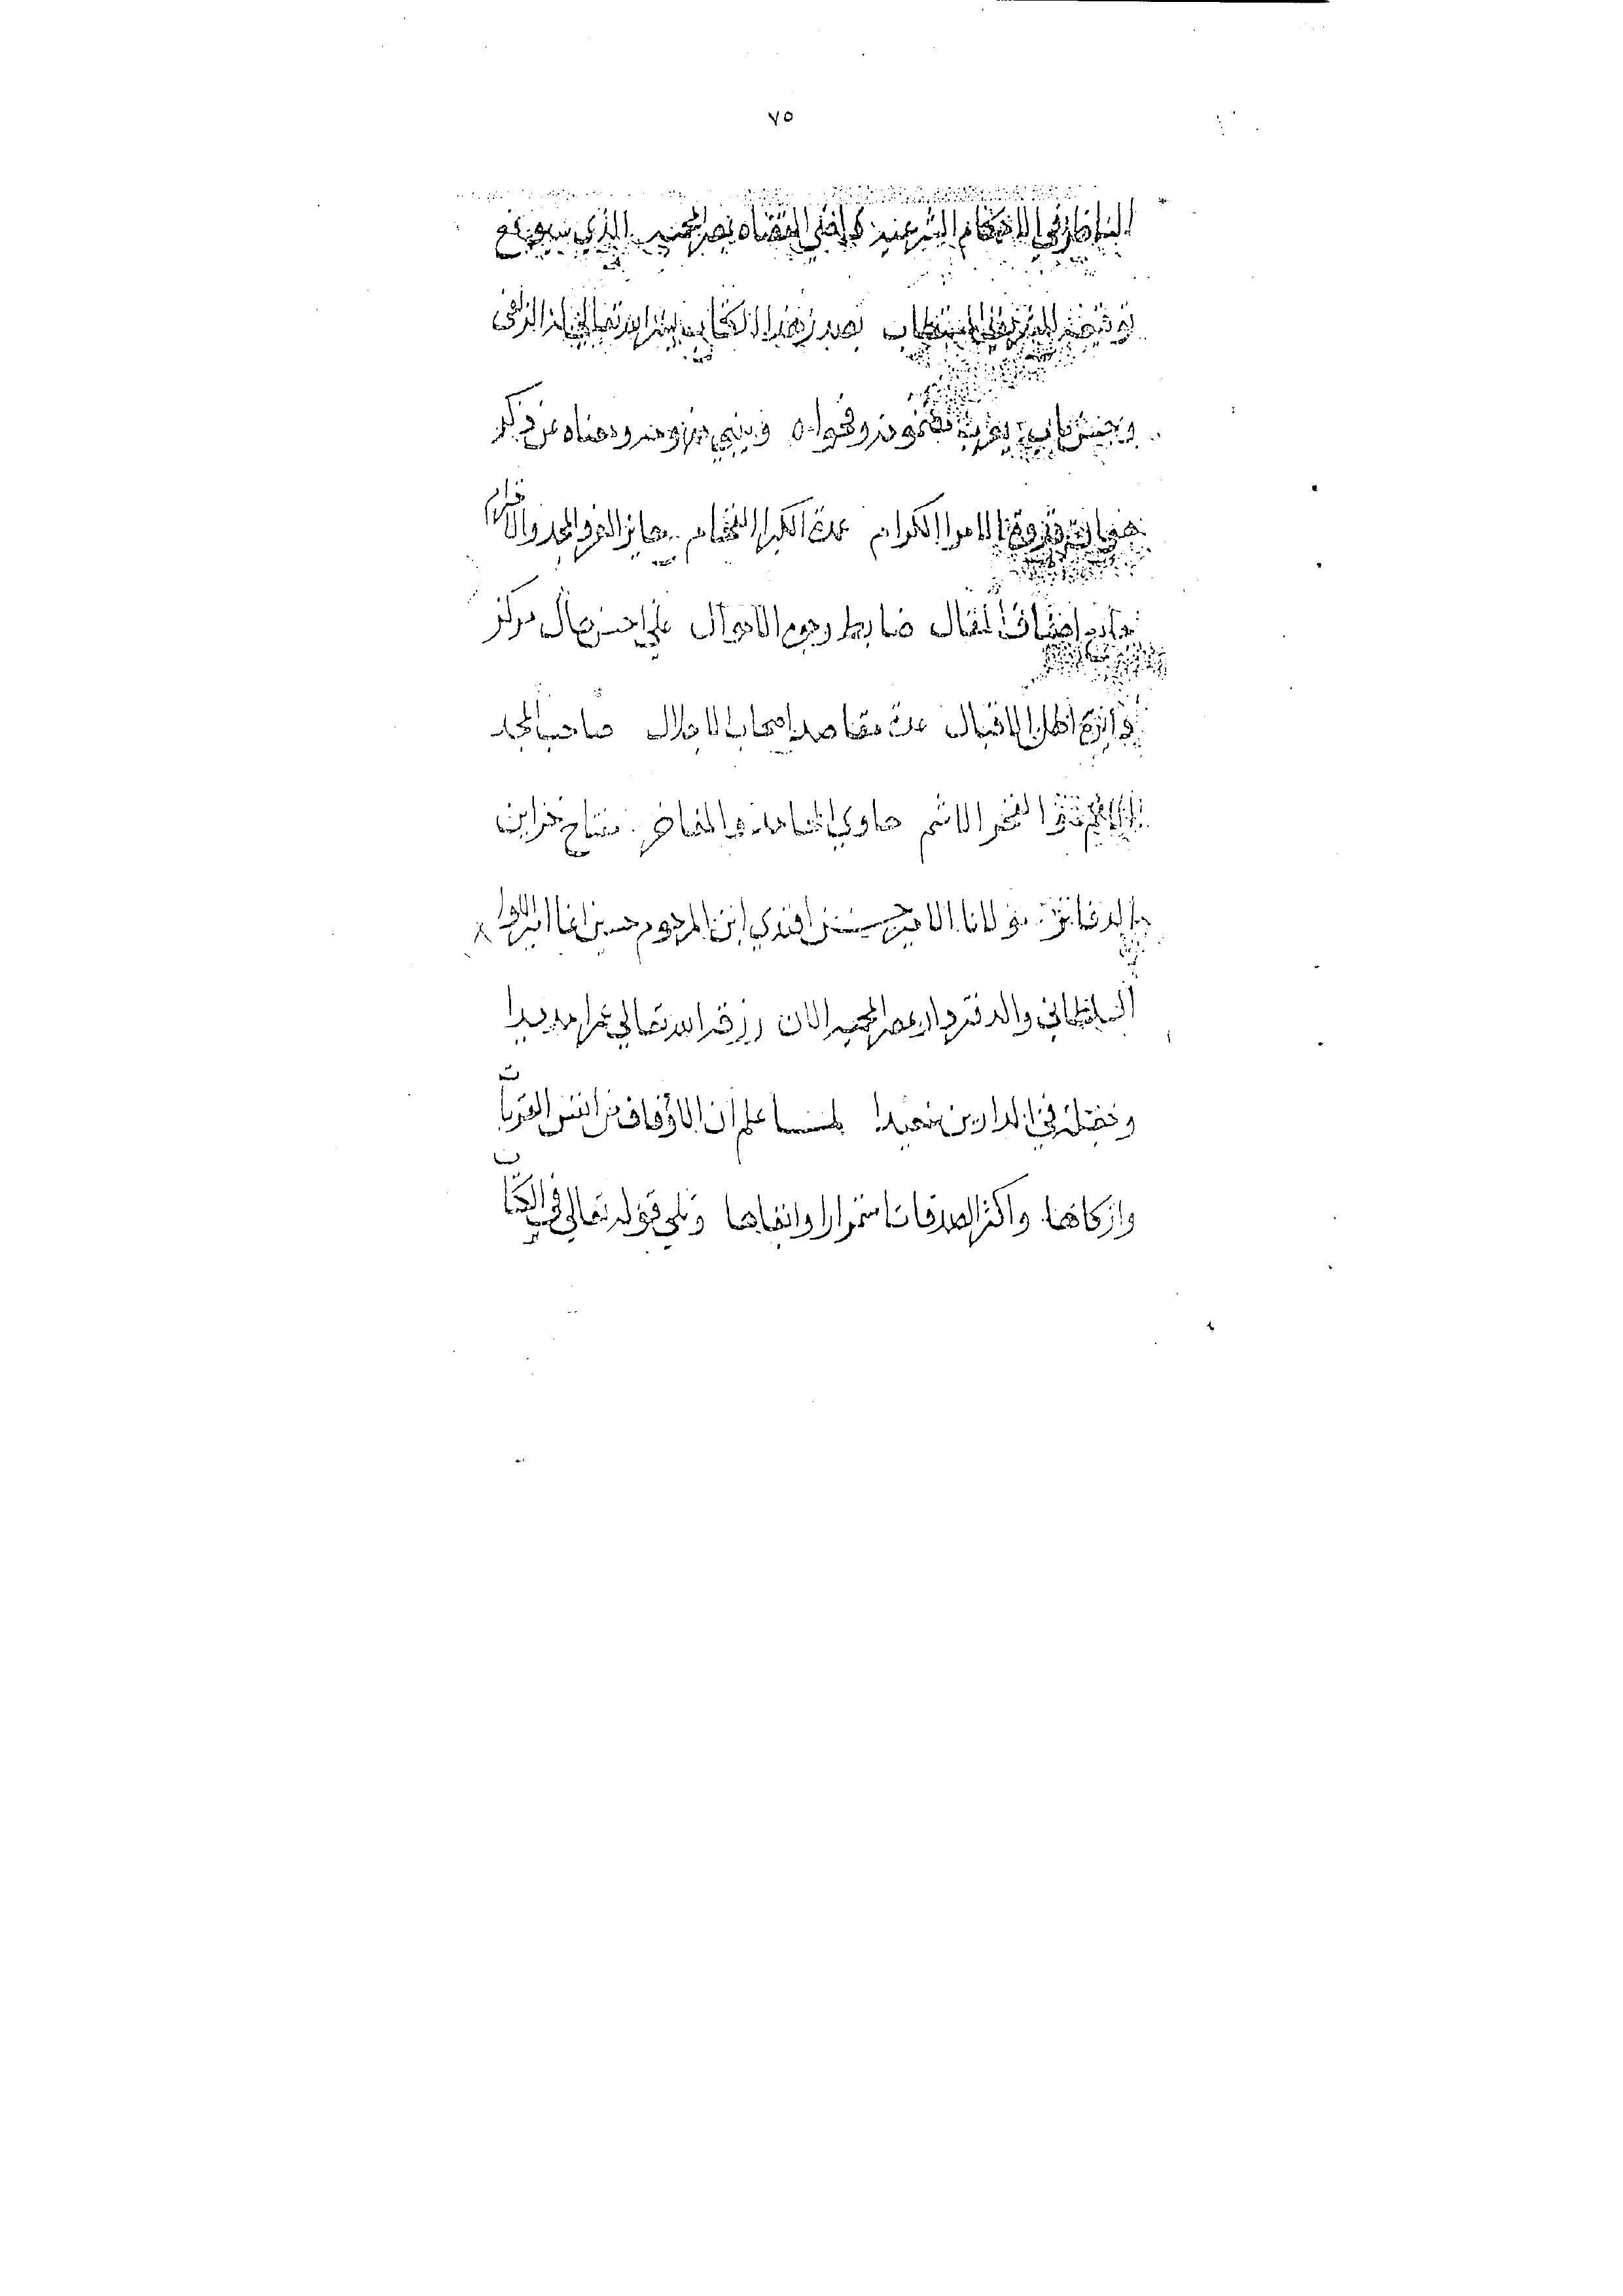 ٧٥
الناظر في الاحكام الشرعيه قاضي القضاه بمصر المحميه الذي سيوضع
توقيعه الشريف المستطاب بصدر هذا الكتاب يسر الله تعالى له الزلفى
وحسن ماب يعرب مضمونه وفحواه وينبي منطوقه ومعناه عن ذكر
قدوة الامرا الكرام عمدة الكبرا الفخام حايز العز والمجد والاحترام
المقال ضابط وجوه الاموال على احسن حال مركز
دائرة الاقبال عمدة مقاصد اصحاب الاجلال صاحب المجد
والفخر الاشم حاوي المحامد والمفاخر مفتاح خزاين
الدفاتر مولانا الامير حسن افندي ابن المرحوم حسين اغا امير اللوا
السلطاني والدفتردار بمصر المحميه الان رزقه الله تعالى عمرا مديدا
وجعله في الدارين سعيدا لما علم ان الاوقاف من انفس القربات
وازكاها واكثر الصدقات استمرارا وابقاها وتلي قوله تعالى في الكتاب